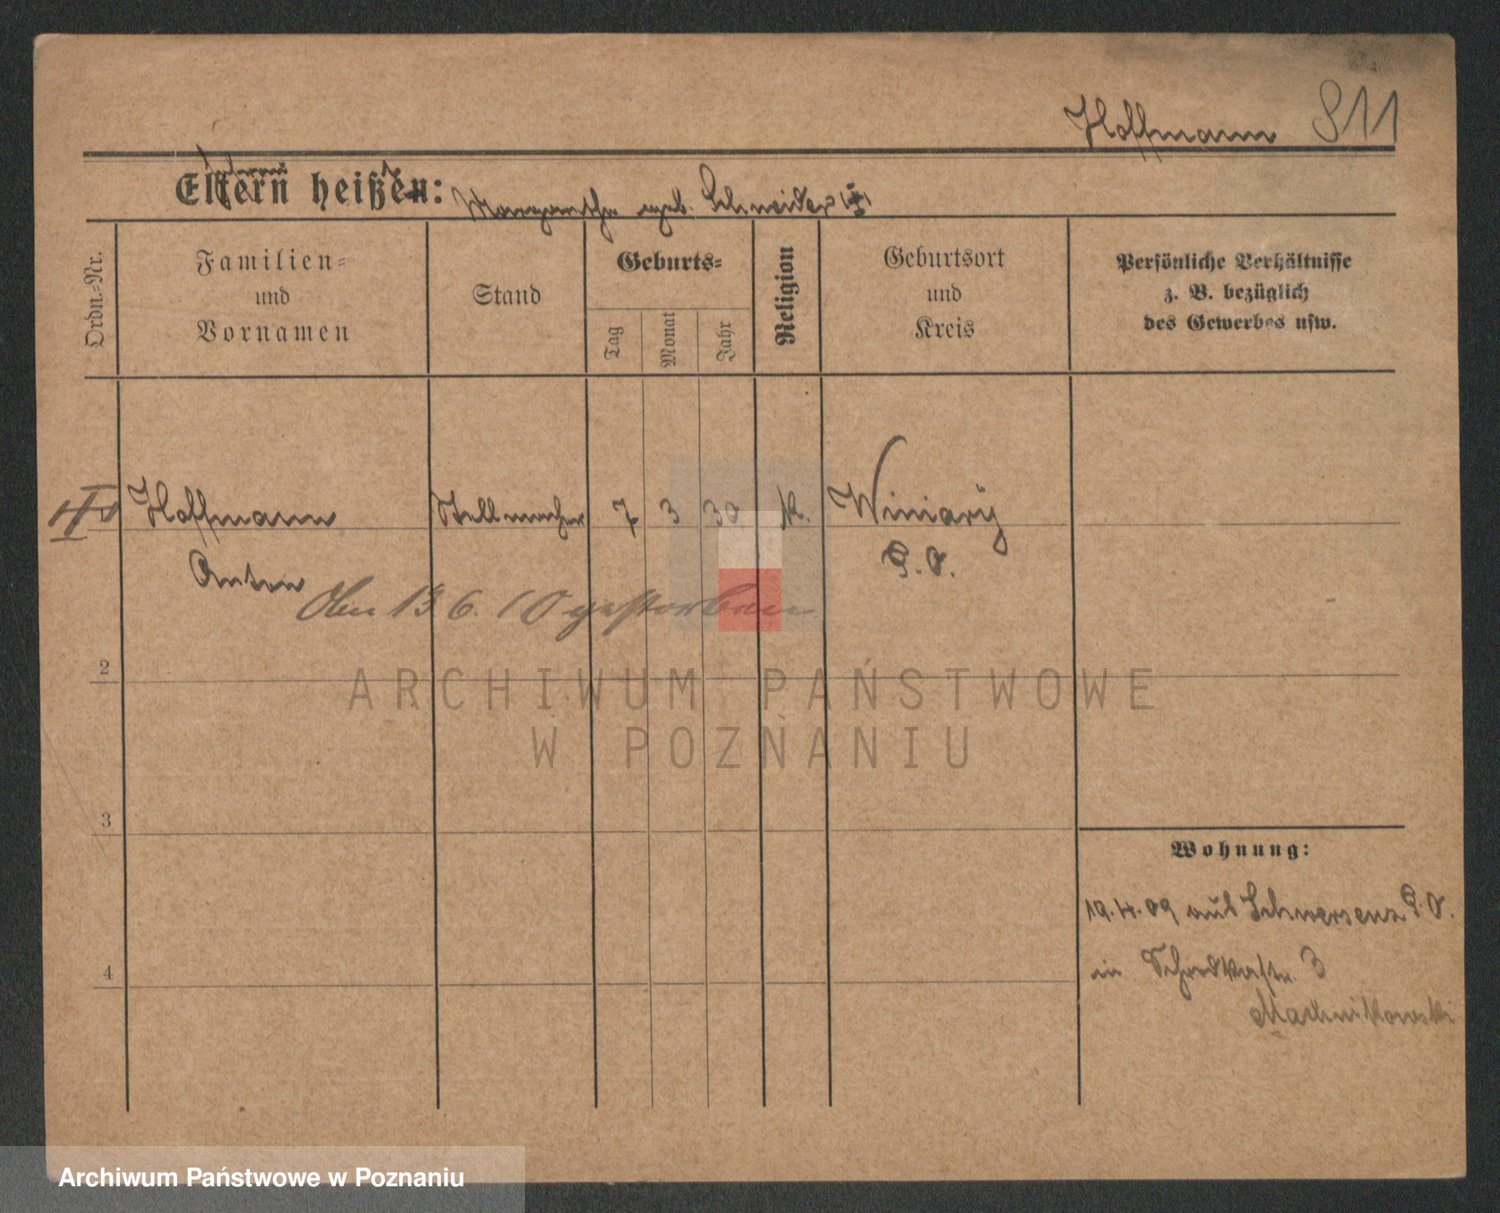 Hoffmann 811
Eltern heißen: Margarethe geb. Schneider
Ordn.-Nr.
Familien-
und
Vornamen
Stand
Geburts-
Tag
Monat
Jahr
Religion
Geburtsort
und
Kreis
Persönliche Verhältnisse
z. B. bezüglich
des Gewerbes usw.
Hoffmann Stellmacher 7 3 30 K. Winiary
Anton P. O.
Am 13 6. 10 gestorben
2
ARCHIWUM PAŃSTWOWE
W POZNANIU
3
Wohnung:
19.4.09 aus Schwersenz P. O.
4
in 3
Machnikowski
Archiwum Państwowe w Poznaniu